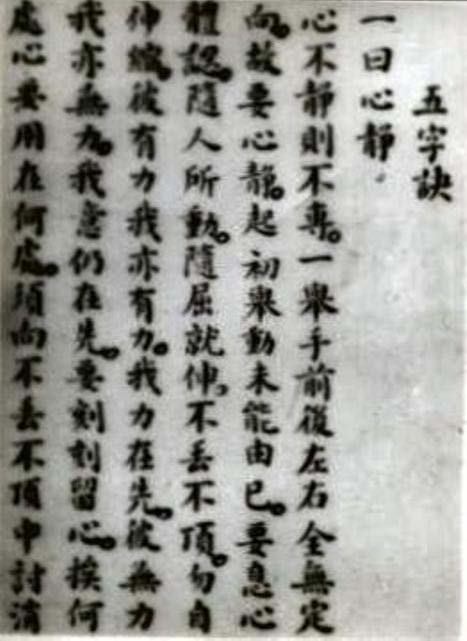 五字訣
一曰心靜。
心不靜則不專。一舉手前後左右全無定
向。故要心靜。起初舉動未能由已。要息心
體認。隨人所動。隨屈就伸。不丢不頂。勿自
伸縮。彼有力我亦有力。我力在先。彼無力
我亦無力。我意仍在先。要刻刻留心。挨何
處心要用在何處。須向不丢不頂中討消